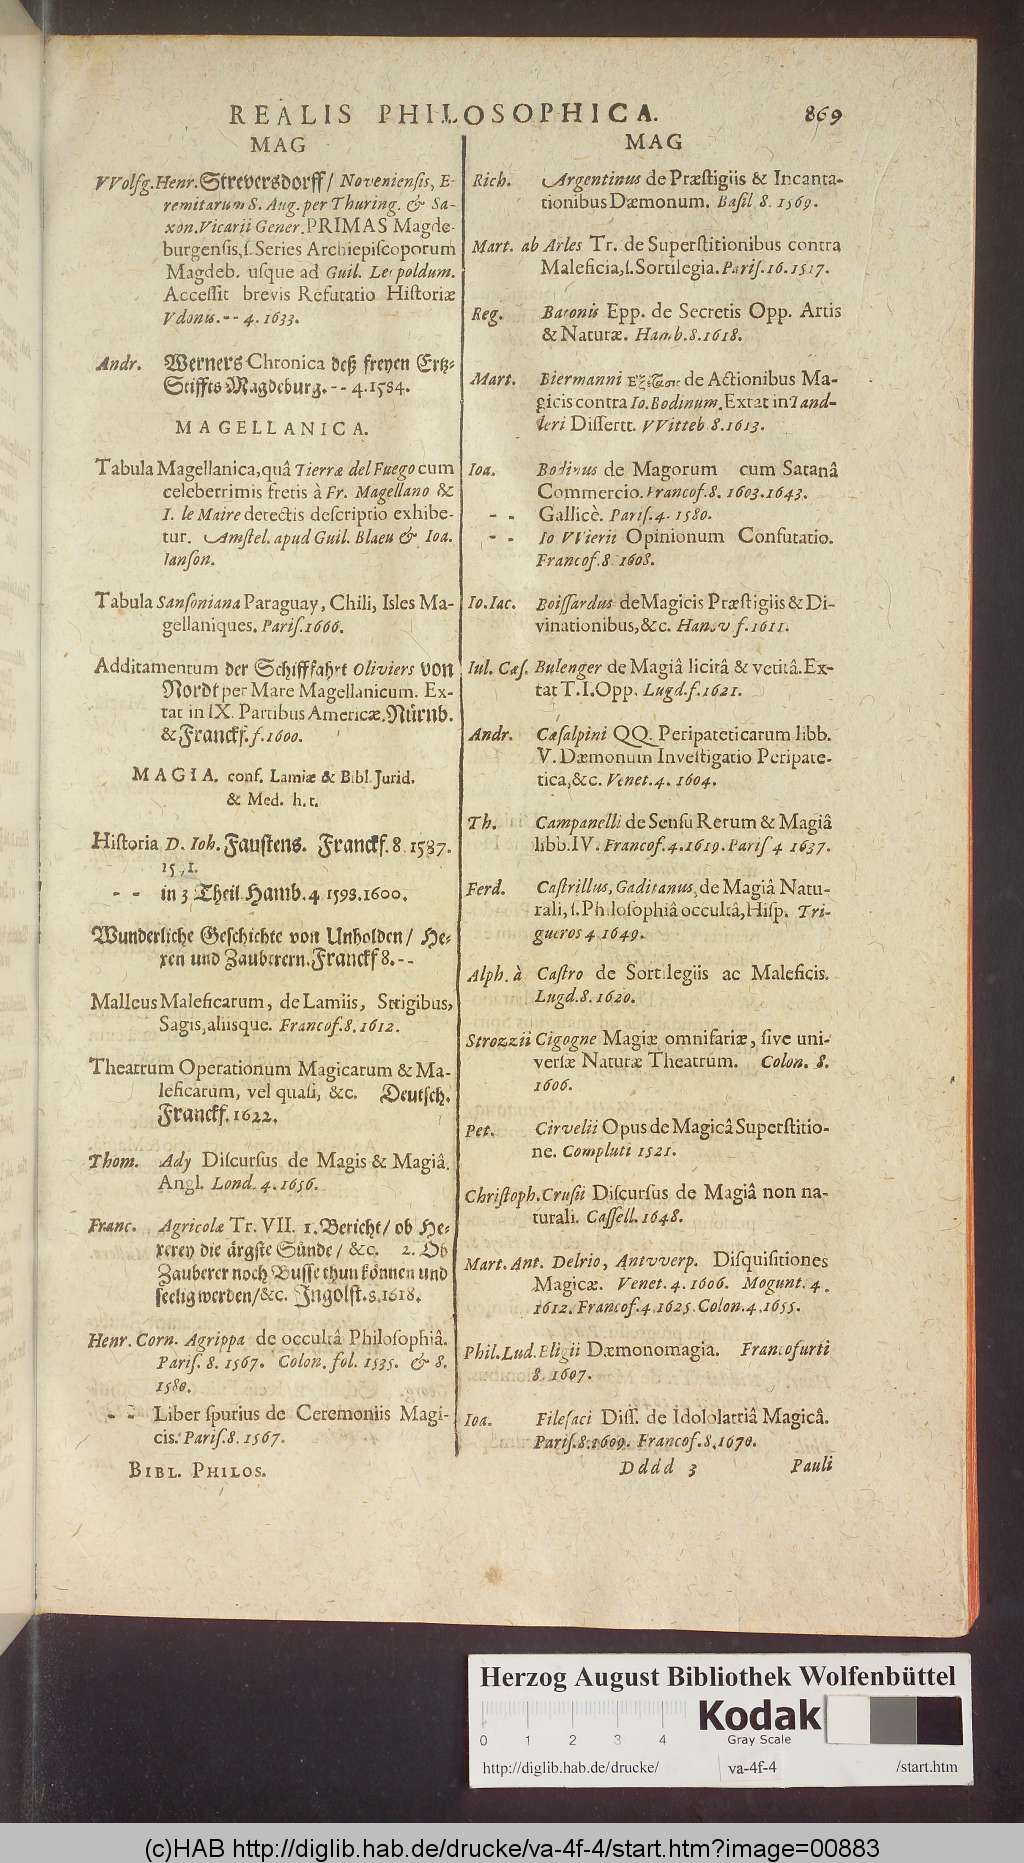 REALIS PHILOSOPHICA. 869
MAG
VVolfg. Henr. Streversdorff/ Noveniensis, E-
remitarum S. Aug. per Thuring. & Sa-
xon. Vicarii Gener. PRIMAS Magde-
burgensis, s. Series Archiepiscoporum
Magdeb. usque ad Guil. Leopoldum.
Accessit brevis Refutatio Historiæ
Vdonis. -- 4. 1633.
Andr. Werners Chronica deß freyen Ertz-
Stiffts Magdeburg. -- 4. 1584.
MAGELLANICA.
Tabula Magellanica, quâ Tierræ del Fuego cum
celeberrimis fretis à Fr. Magellano &
I. le Maire detectis descriptio exhibe-
tur. Amstel. apud Guil. Blaeu & Ioa.
Ianson.
Tabula Sansoniana Paraguay, Chili, Isles Ma-
gellaniques. Paris. 1666.
Additamentum der Schifffahrt Oliviers von
Nordt per Mare Magellanicum. Ex-
tat in IX. Partibus Americæ. Nürnb.
& Franckf. f. 1600.
MAGIA. conf. Lamiæ & Bibl. Jurid.
& Med. h. t.
Historia D. Ioh. Faustens. Franckf. 8. 1587.
-- in 3 Theil. Hamb. 4. 1598. 1600.
Wunderliche Geschichte von Unholden/ He-
xen und Zauberern. Franckf 8. --
Malleus Maleficarum, de Lamiis, Strigibus,
Sagis, aliisque. Francof. 8. 1612.
Theatrum Operationum Magicarum & Ma-
leficarum, vel quasi, &c. Deutsch.
Franckf. 1622.
Thom. Ady Discursus de Magis & Magiâ.
Angl. Lond. 4. 1656.
Franc. Agricolæ Tr. VII. 1. Bericht/ ob He-
xerey die ärgste Sünde/ &c. 2. Ob
Zauberer noch Busse thun können und
seelig werden/ &c. Ingolst. 8. 1618.
Henr. Corn. Agrippa de occultâ Philosophiâ.
Paris. 8. 1567. Colon. fol. 1535. & 8.
1580.
-- Liber spurius de Ceremoniis Magi-
cis. Paris. 8. 1567.
BIBL. PHILOS.
MAG
Rich. Argentinus de Præstigiis & Incanta-
tionibus Dæmonum. Basil 8. 1569.
Mart. ab Arles Tr. de Superstitionibus contra
Maleficia, s. Sortilegia. Paris. 16. 1517.
Reg. Baconis Epp. de Secretis Opp. Artis
& Naturæ. Hamb. 8. 1618.
Mart. Biermanni de Actionibus Ma-
gicis contra Io. Bodinum. Extat in Tand-
leri Dissertt. VVitteb 8. 1613.
Ioa. Bodinus de Magorum cum Satanâ
Commercio. Francof. 8. 1603. 1643.
-- Gallicè. Paris. 4. 1580.
-- Io VVierii Opinionum Confutatio.
Francof. 8. 1608.
Io. Iac. Boissardus de Magicis Præstigiis & Di-
vinationibus, &c. Hanov f. 1611.
Iul. Cæs. Bulenger de Magiâ licitâ & vetitâ. Ex-
tat T. I. Opp. Lugd. f. 1621.
Andr. Cæsalpini QQ. Peripateticarum libb.
V. Dæmonum Investigatio Peripate-
tica, &c. Venet. 4. 1604.
Th. Campanelli de Sensu Rerum & Magiâ
libb. IV. Francof. 4. 1619. Paris 4 1637.
Ferd. Castrillus, Gaditanus, de Magiâ Natu-
rali, s. Philosophiâ occultâ, Hisp. Tri-
gueros 4. 1649.
Alph. à Castro de Sortilegiis ac Maleficis.
Lugd. 8. 1620.
Strozzii Cigogne Magiæ omnifariæ, sive uni-
versæ Naturæ Theatrum. Colon. 8.
1606.
Pet. Cirvelii Opus de Magicâ Superstitio-
ne. Compluti 1521.
Christoph. Crusii Discursus de Magiâ non na-
turali. Cassell. 1648.
Mart. Ant. Delrio, Antvverp. Disquisitiones
Magicæ. Venet. 4. 1606. Mogunt. 4.
1612. Francof. 4. 1625. Colon. 4. 1655.
Phil. Lud. Eligii Dæmonomagia. Francofurti
8. 1607.
Ioa. Filesaci Diss. de Idololatriâ Magicâ.
Paris. 8. 1609. Francof. 8. 1670.
Dddd 3 Pauli
Herzog August Bibliothek Wolfenbüttel
Kodak
Gray Scale
0 1 2 3 4
http://diglib.hab.de/drucke/ va-4f-4 /start.htm
(c)HAB http://diglib.hab.de/drucke/va-4f-4/start.htm?image=00883